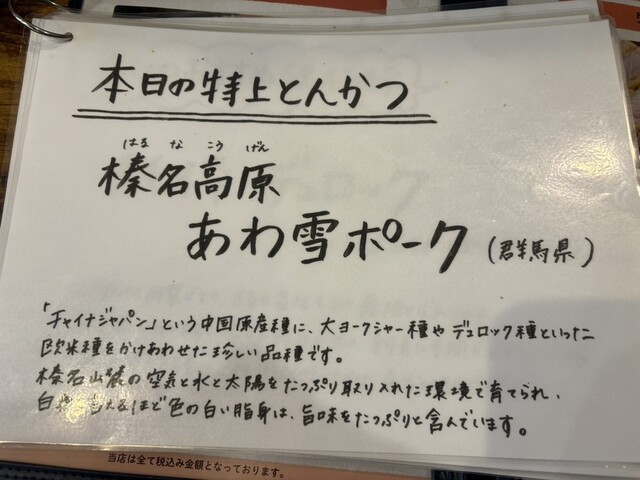 本日の特上とんかつ
はる な こう げん
榛名高原
あわ雪ポーク (群馬県)
「チャイナジャパン」という中国原産種に、大ヨークシャー種やデュロック種といった
欧米種をかけあわせた珍しい品種です。
榛名山麓の空気と水と太陽をたっぷり取り入れた環境で育てられ、
白 えるほど色の白い脂身は、旨味をたっぷりと含んでいます。
当店は全て税込み金額となっております。